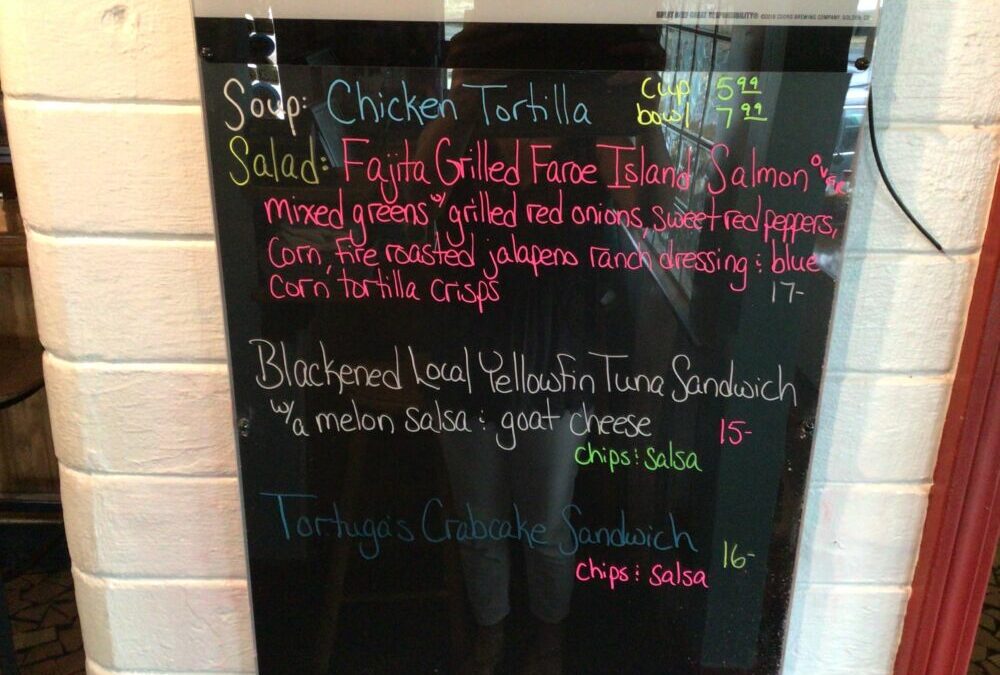 GREAT BEER GREAT RESPONSIBILITY® ©2018 COORS BREWING COMPANY, GOLDEN, CO
Soup: Chicken Tortilla cup 5.99
bowl 7.99
Salad: Fajita Grilled Faroe Island Salmon over
mixed greens w/ grilled red onions, sweet red peppers,
corn, fire roasted jalapeno ranch dressing & blue
corn tortilla crisps 17-
Blackened Local Yellowfin Tuna Sandwich
w/a melon salsa & goat cheese 15-
chips & salsa
Tortuga's Crabcake Sandwich 16-
chips & salsa